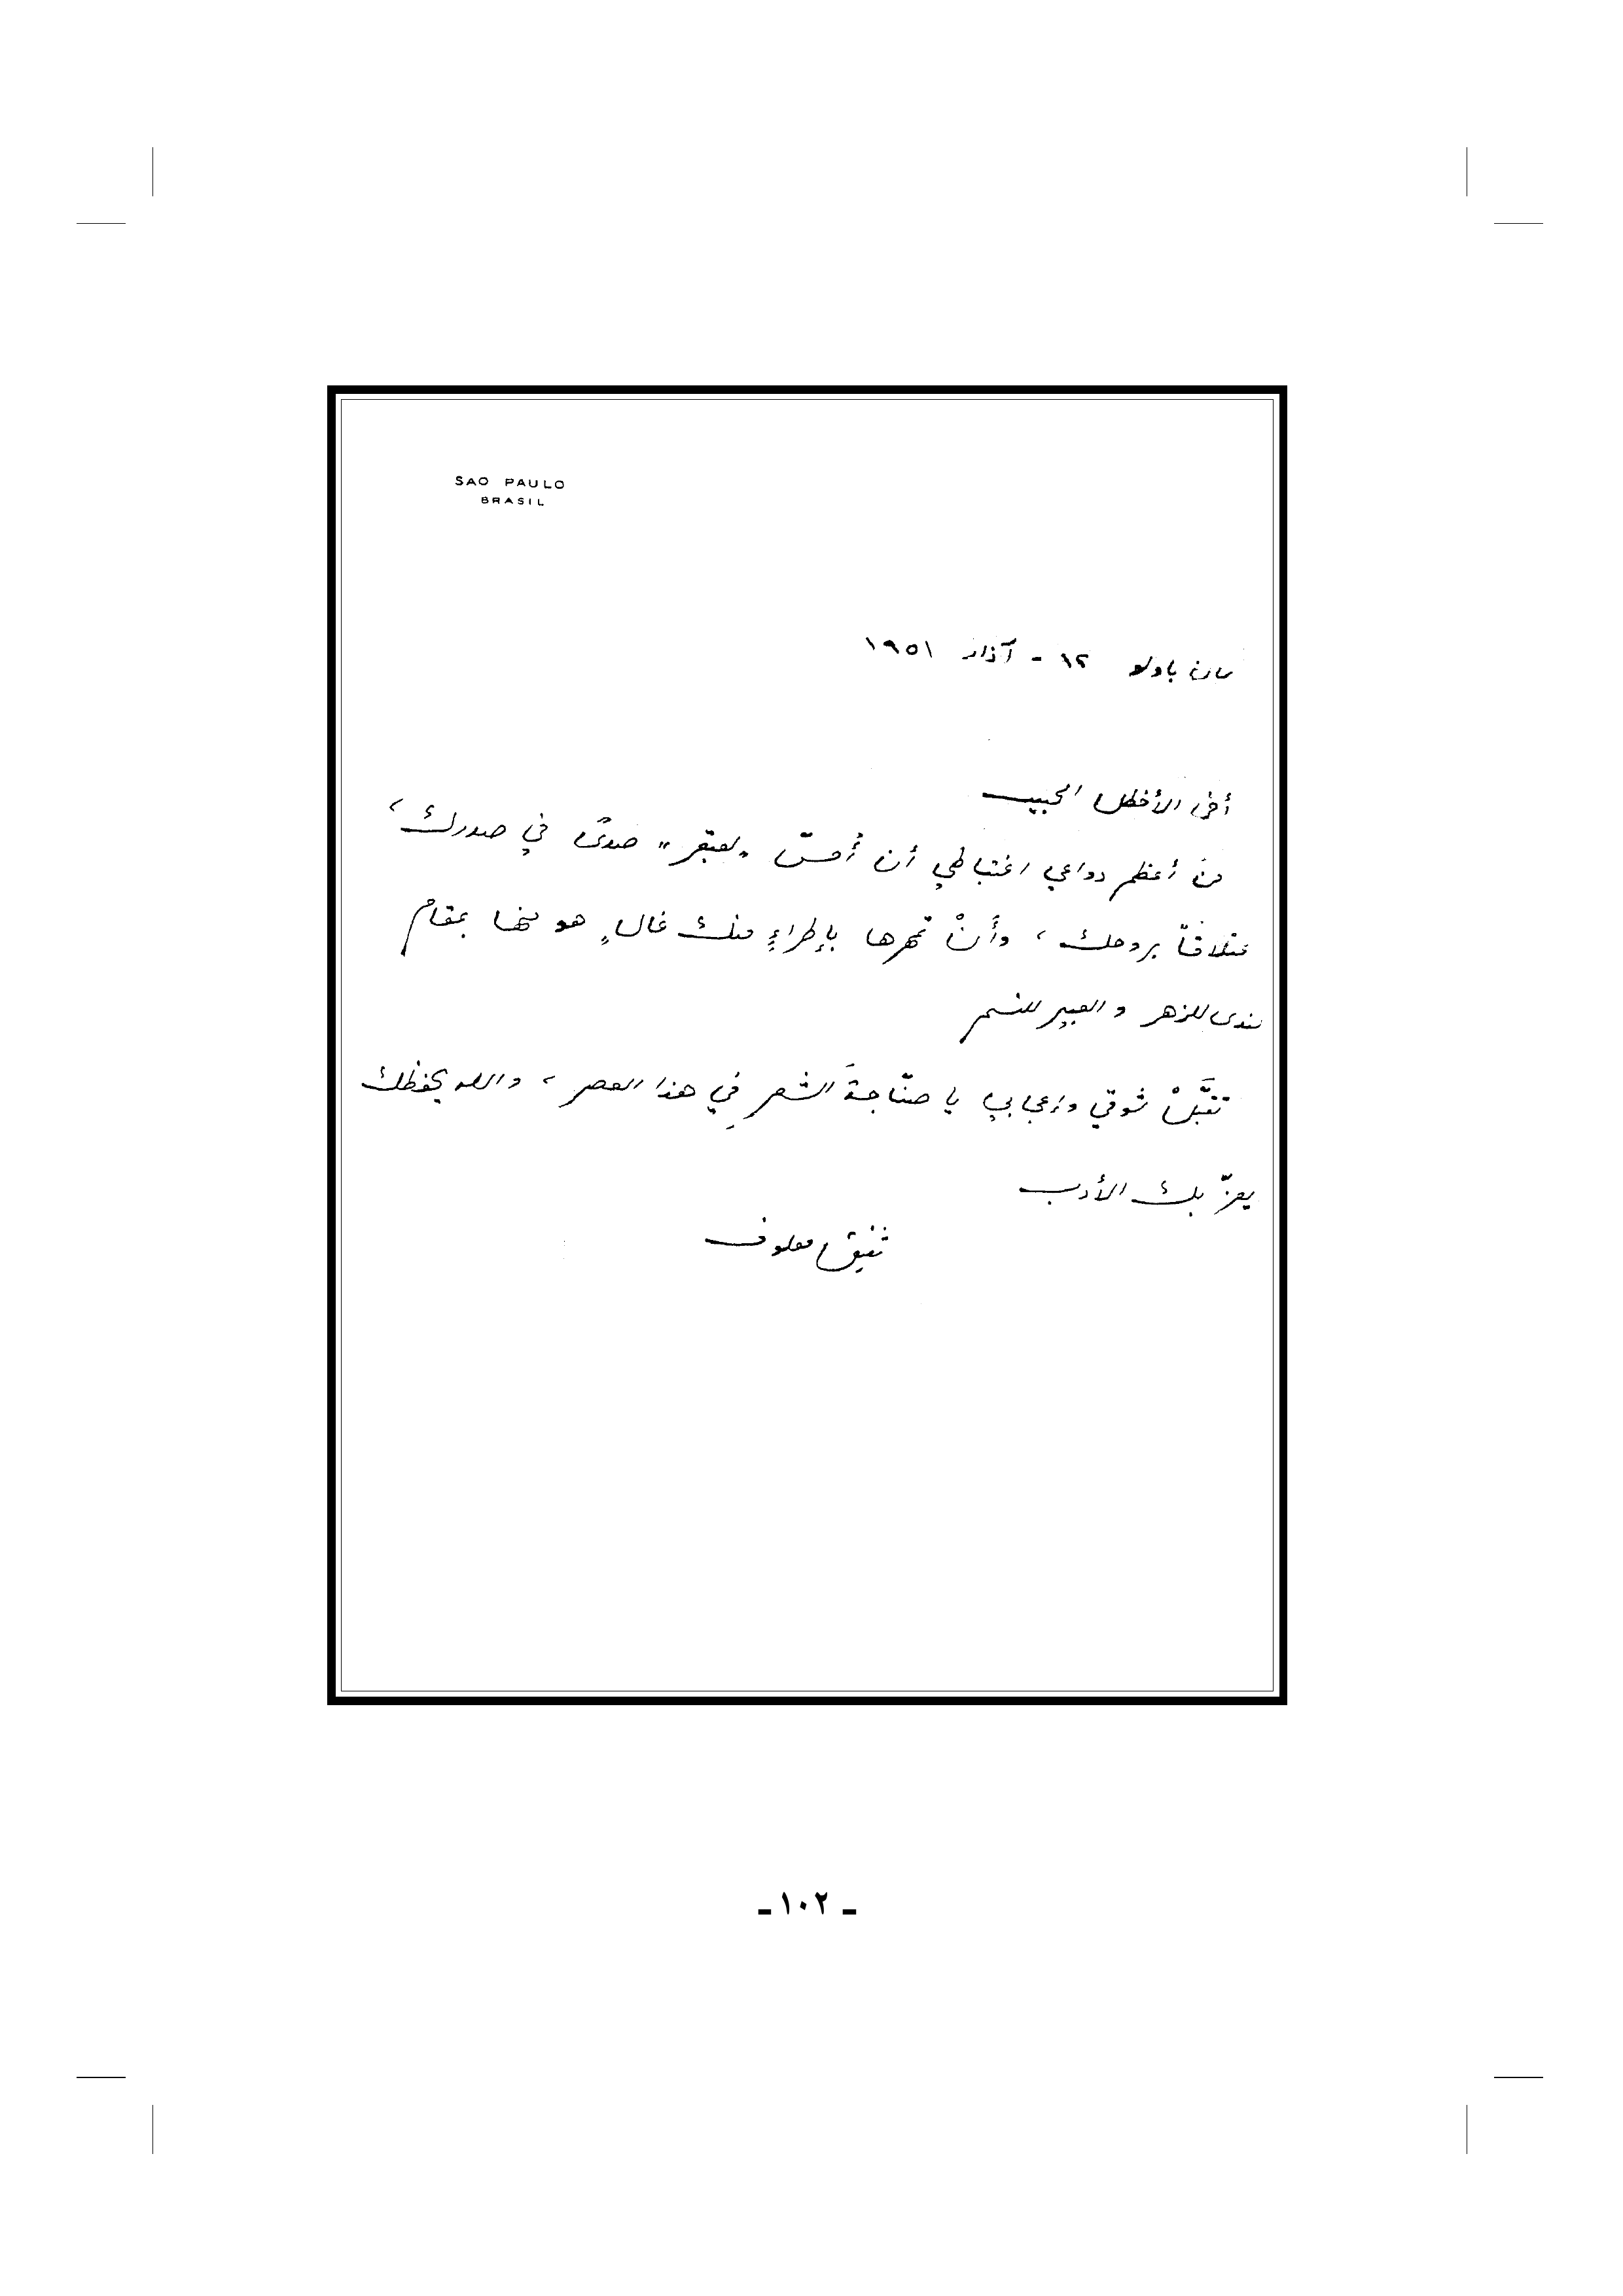 SAO PAULO
BRASIL
سان باولو ١٢ - آذار ١٩٥١
أخي الأخطل الحبيب
من أعظم دواعي اغتباطي أن أحسّ «لعبقر» صدىً في صدرك،
عتلاقاً بروحك، وأنْ تمهرها بإطراءٍ منك غالٍ هو منها بمقام
لندى للزهر والعبير للنسم
تقبَّلْ شوقي وإعجابي يا صنّاجةَ الشعرِ في هذا العصر، والله يحفظك
يعزّ بك الأدب
شفيق معلوف
- ١٠٢ -